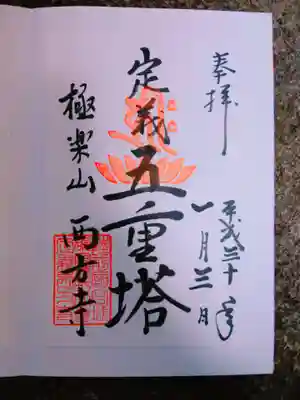 奉拝
平成三十年
一月三日
定義五重塔
極楽山
西方寺